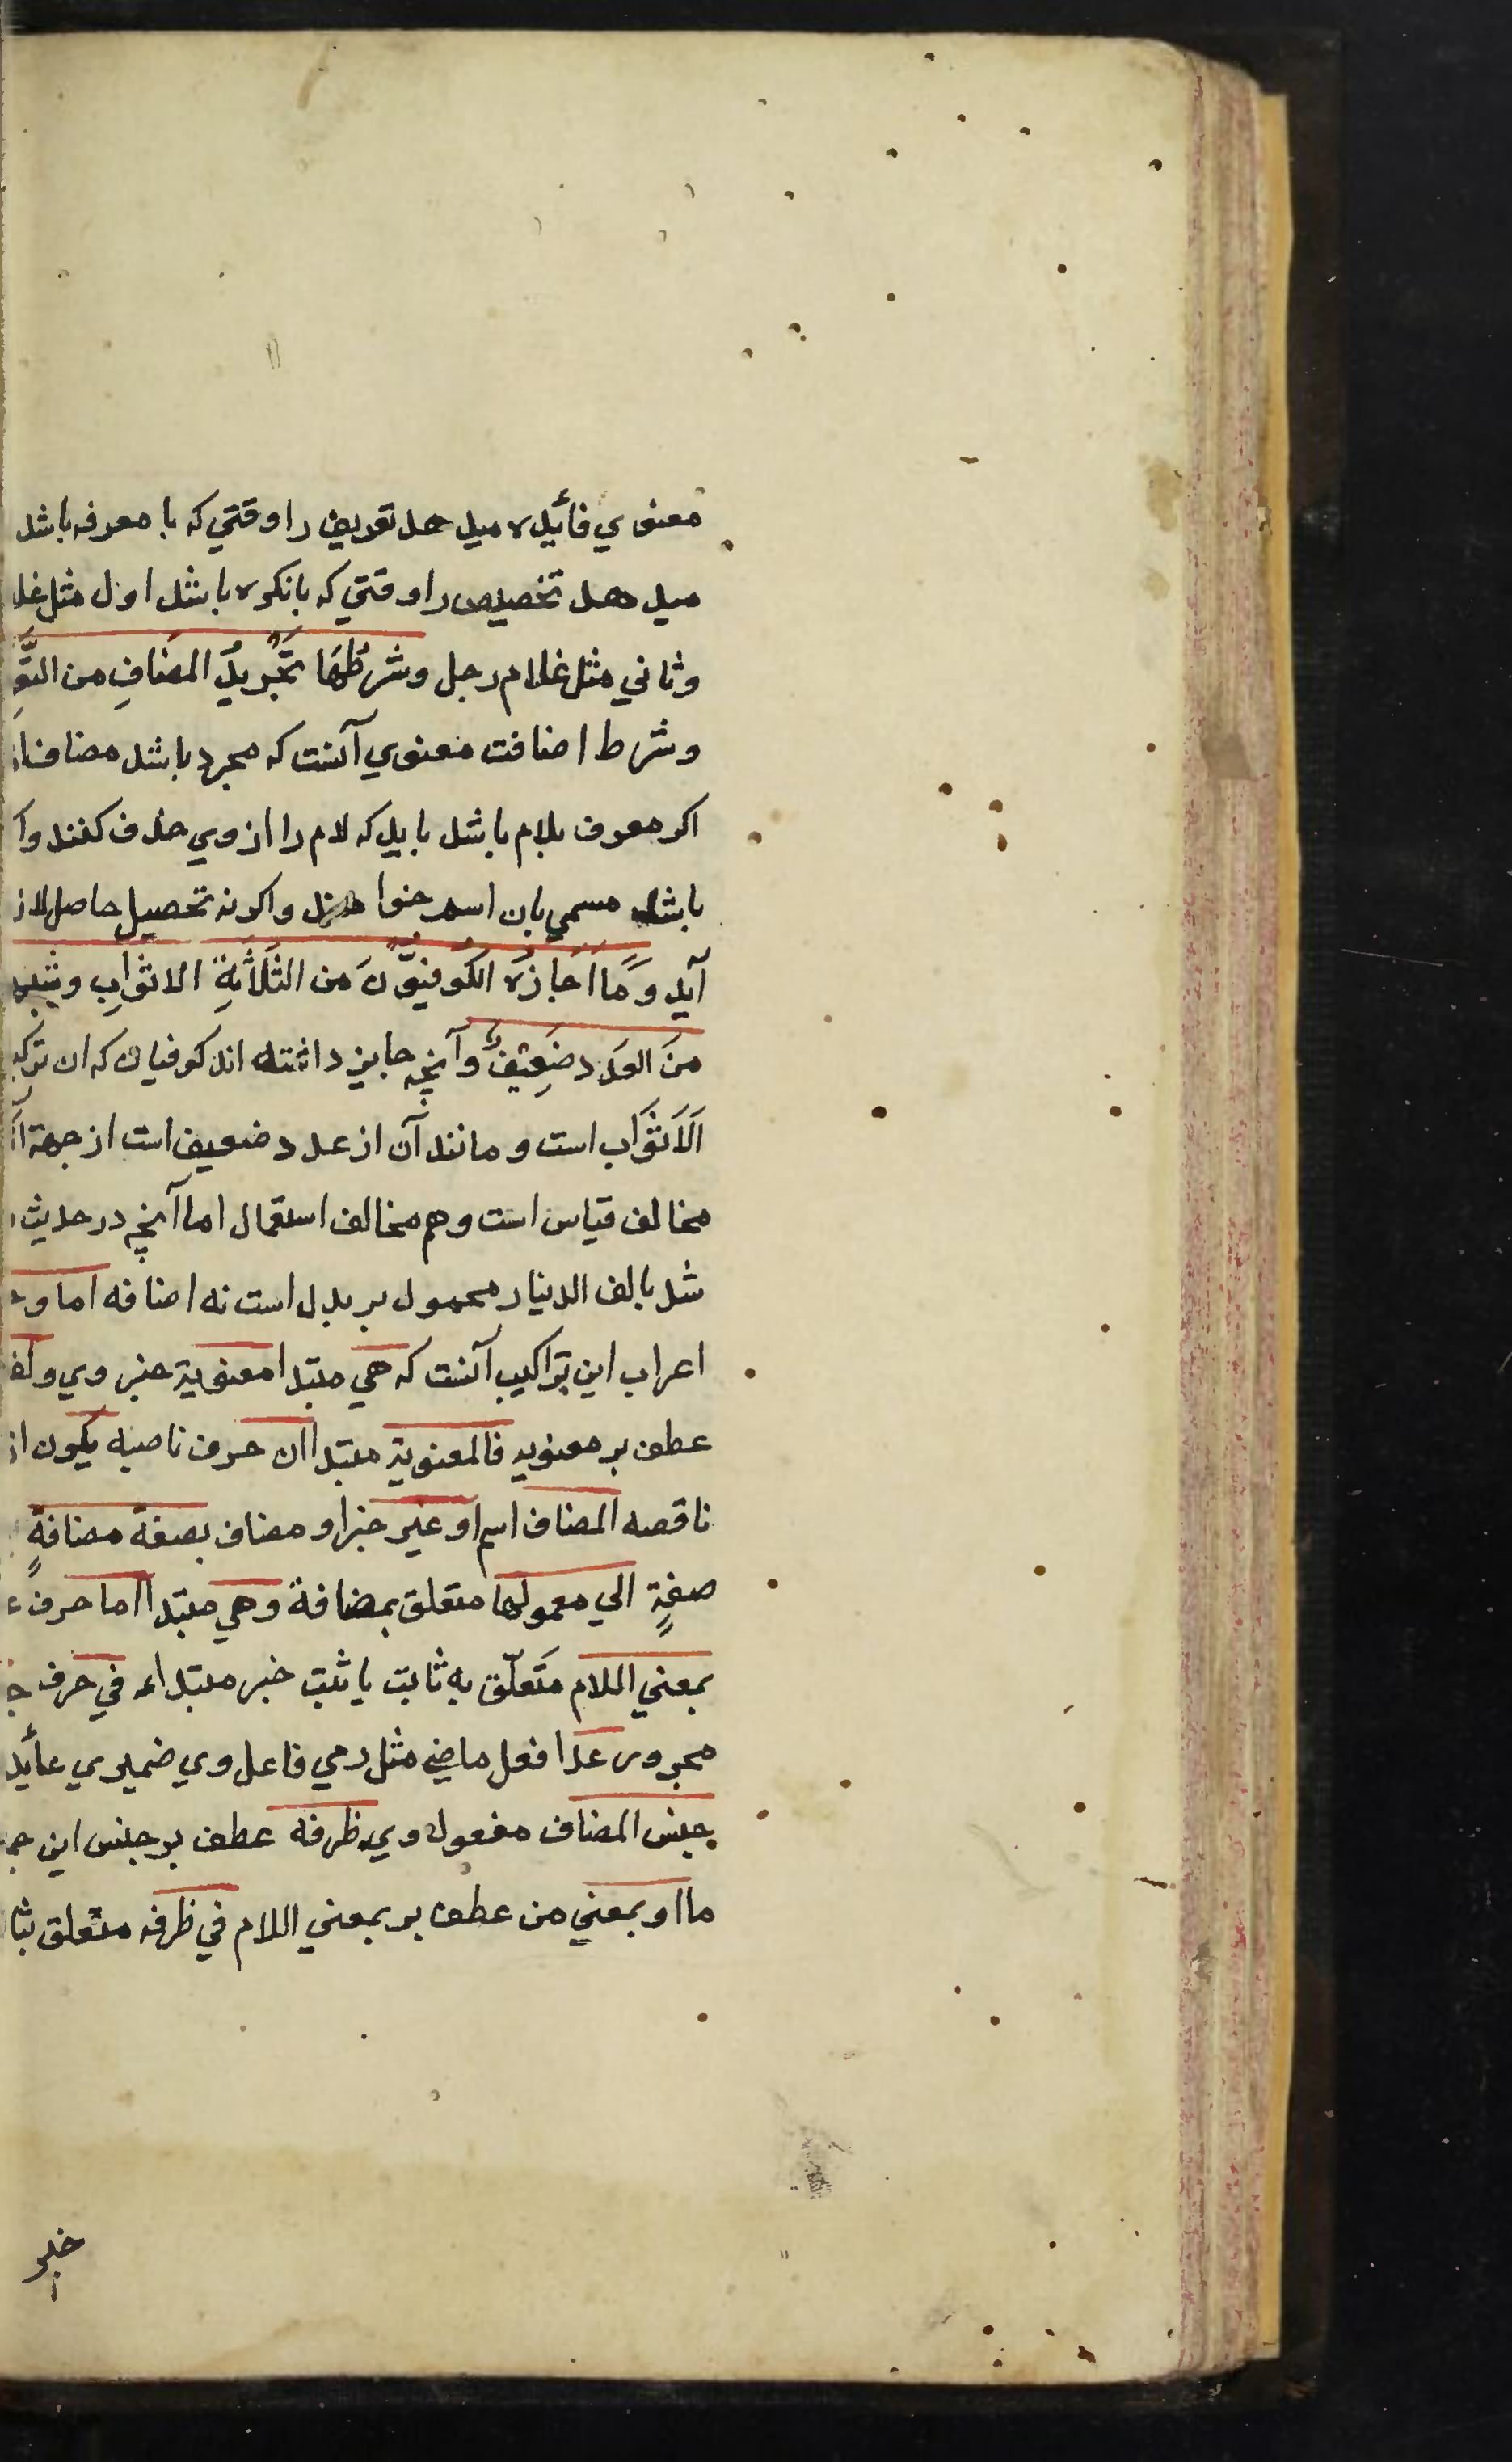 معنوي فائیده میدهد تعریف را وقتي که با معرفه باشد
میدهد تخصیص را وقتي که بانکره باشد اول مثل غلا
وثاني مثل غلام رجل وشَرطُهَا تَجْرِیدُ المضَافِ من التَّ
وشرط اضافت معنوي آنست که مجرد باشد مضاف از
اکر معرف بلام باشد باید که لام را از وي حذف کنند وا
باشد مسمي بان اسم خوا هند واکرنه تحصیل حاصل لاز
آید وَمَا اَجَازَه الکُوفِیُّونَ مَن الثَلَاثَةِ الاثوَابِ وشبهه
منَ العَدد ضَعِیفٌ وآنچه جایز داشته اند کوفیان که ان ترکیـ
اَلاَثوَاب است ومانند آن از عدد ضعیف است از جهة آ
مخالف قیاس است وهم مخالف استعمال اما آنچه در حدیث
شد بالف الدینار محمول بر بدل است نه اضافه اما و
اعراب این تراکیب آنست که هي مبتدا معنویة خبر وي ولفـ
عطف بر معنویه فالمعنویة مبتدا ان حرف ناصبه یکون از
ناقصه المضاف اسم او غیر خبر او مضاف بصفة مضافةٍ
صفةٍ الي معمولها متعلق بمضافة وهي مبتدا اما حرف ع
بمعني اللام متَعلّق به ثابت یا ثبت خبر مبتداء في حرف جـ
مجرور عدا فعل ماضي مثل رمي فاعل وي ضمیري عائید
جنس المضاف مفعول وي ظرفه عطف بر جنس این جمـ
ما او بمعني من عطف بر بمعني اللام في ظرفه متعلق بثا
خبر